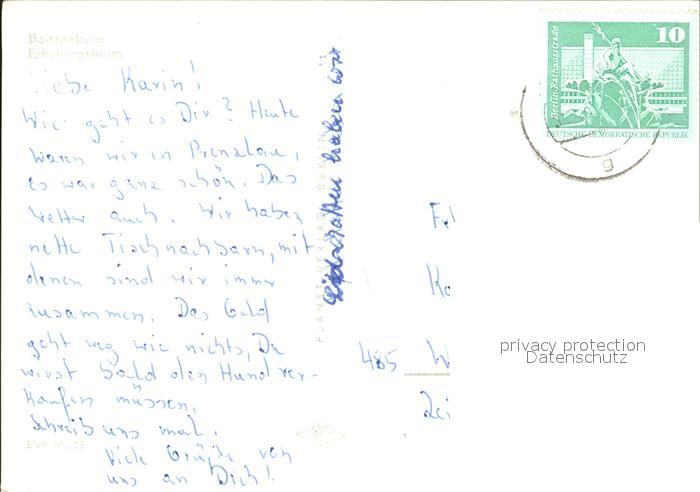 Boitzenburg
Erholungsheim
Liebe Karin!
Wie geht es Dir? Heute
waren wir in Prenzlau,
es war ganz schön. Das
Wetter auch. Wir haben
nette Tischnachbarn, mit
denen sind wir immer
zusammen. Das Geld
geht weg wie nichts, Du
wirst bald den Hund ver-
kaufen müssen.
Schreib uns mal.
Viele Grüße von
uns an Dich!
EVP M
haben wir
PLANET-VERLAG BERLIN
10
Berlin, Rathausstraße
DEUTSCHE DEMOKRATISCHE REPUBLIK
g
485 W
privacy protection
Datenschutz